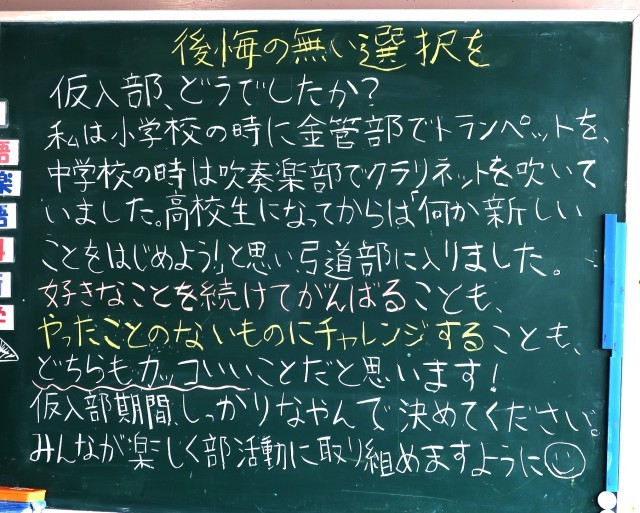 後悔の無い選択を
仮入部、どうでしたか?
私は小学校の時に金管部でトランペットを、
中学校の時は吹奏楽部でクラリネットを吹いて
いました。高校生になってからは「何か新しい
ことをはじめよう!」と思い、弓道部に入りました。
好きなことを続けてがんばることも、
やったことのないものにチャレンジすることも、
どちらもカッコいいことだと思います!
仮入部期間、しっかりなやんで決めてください。
みんなが楽しく部活動に取り組めますように
語
楽
語